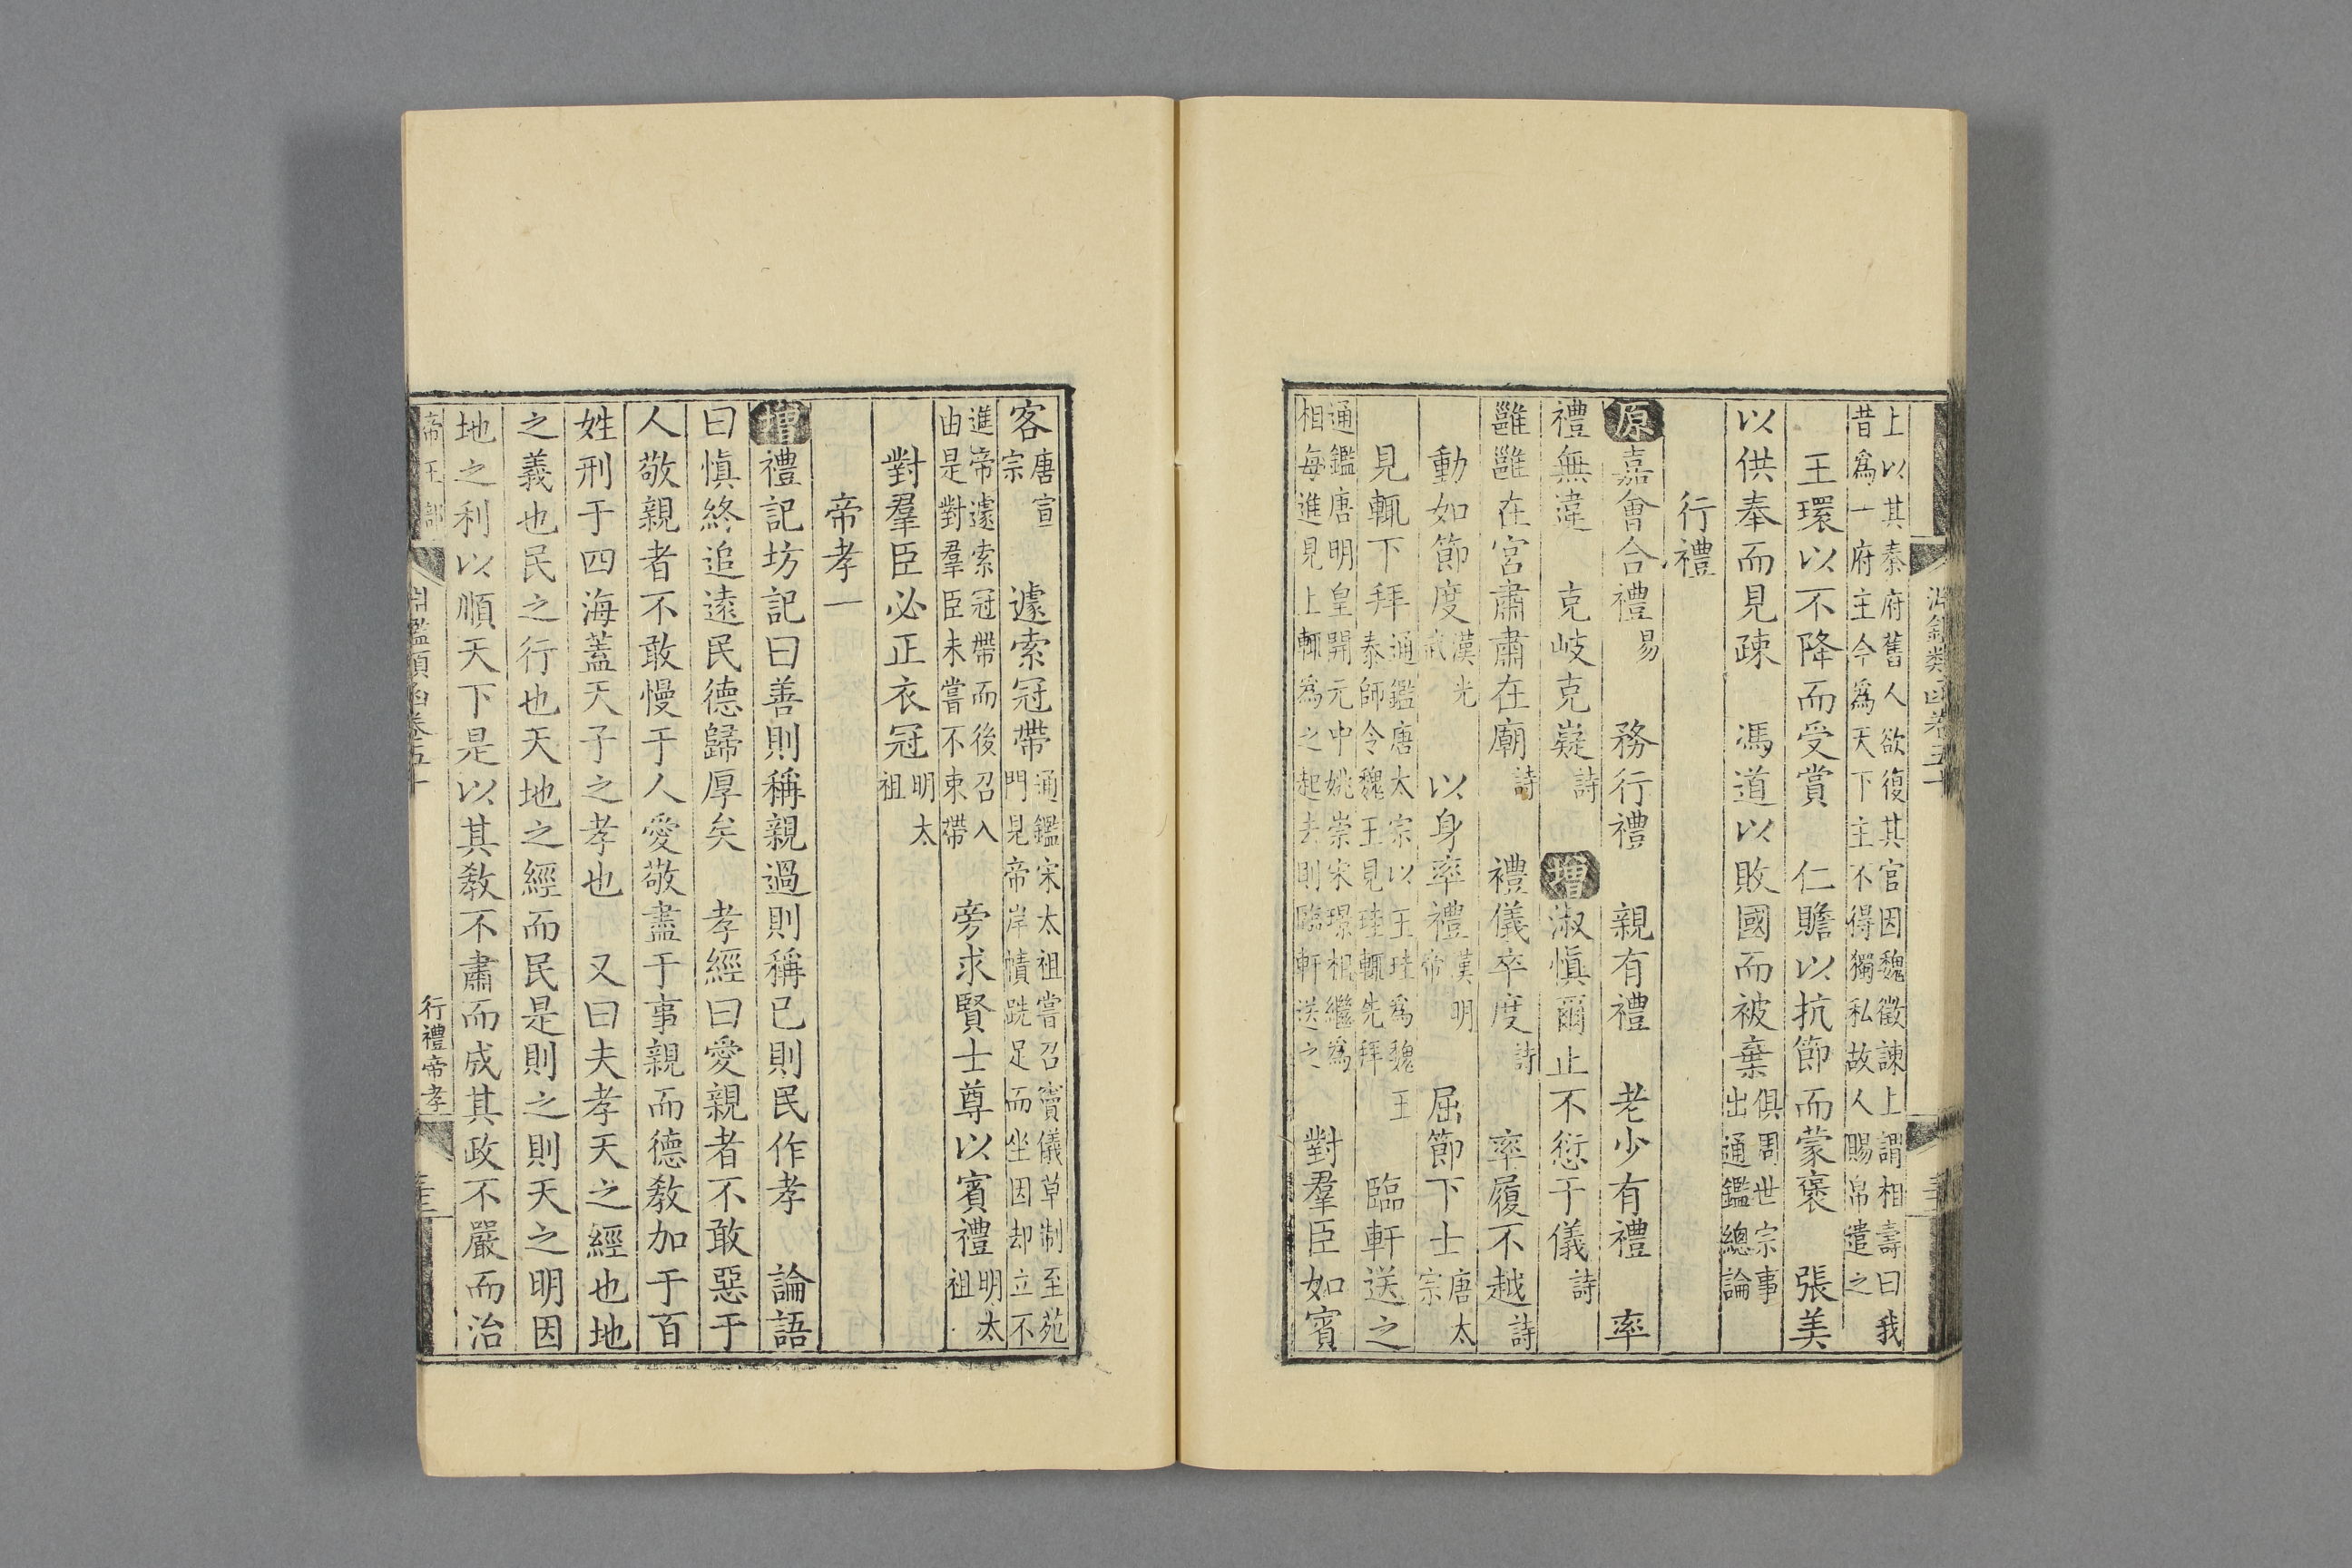 上以其秦府舊人欲復其官因魏徵諫上謂相壽曰我
昔爲一府主今爲天下主不得獨私故人賜帛遣之
王環以不降而受賞　仁贍以抗節而蒙褒　張美
以供奉而見疎　馮道以敗國而被棄俱周世宗事
出通鑑總論
行禮
原嘉會合禮易　務行禮　親有禮　老少有禮　率
禮無違　克岐克嶷詩　增淑慎爾止不愆于儀詩
雝雝在宮肅肅在廟詩　禮儀卒度詩　率履不越詩
動如節度漢光武　以身率禮漢明帝　屈節下士唐太宗
見輒下拜通鑑唐太宗以王珪爲魏王
泰師令魏王見珪輒先拜　臨軒送之
通鑑唐明皇開元中姚崇宋璟相繼爲
相每進見上輒爲之起去則臨軒送之　對羣臣如賓
客唐宣宗　遽索冠帶通鑑宋太祖嘗召竇儀草制至苑
門見帝岸幘跣足而坐因却立不
進帝遽索冠帶而後召入
由是對羣臣未嘗不束帶　旁求賢士尊以賓禮明太祖
對羣臣必正衣冠明太祖
帝孝一
增禮記坊記曰善則稱親過則稱己則民作孝　論語
曰慎終追遠民德歸厚矣　孝經曰愛親者不敢惡于
人敬親者不敢慢于人愛敬盡于事親而德教加于百
姓刑于四海蓋天子之孝也　又曰夫孝天之經也地
之義也民之行也天地之經而民是則之則天之明因
地之利以順天下是以其教不肅而成其政不嚴而治
帝王部
淵鑑類函卷五十
行禮帝孝